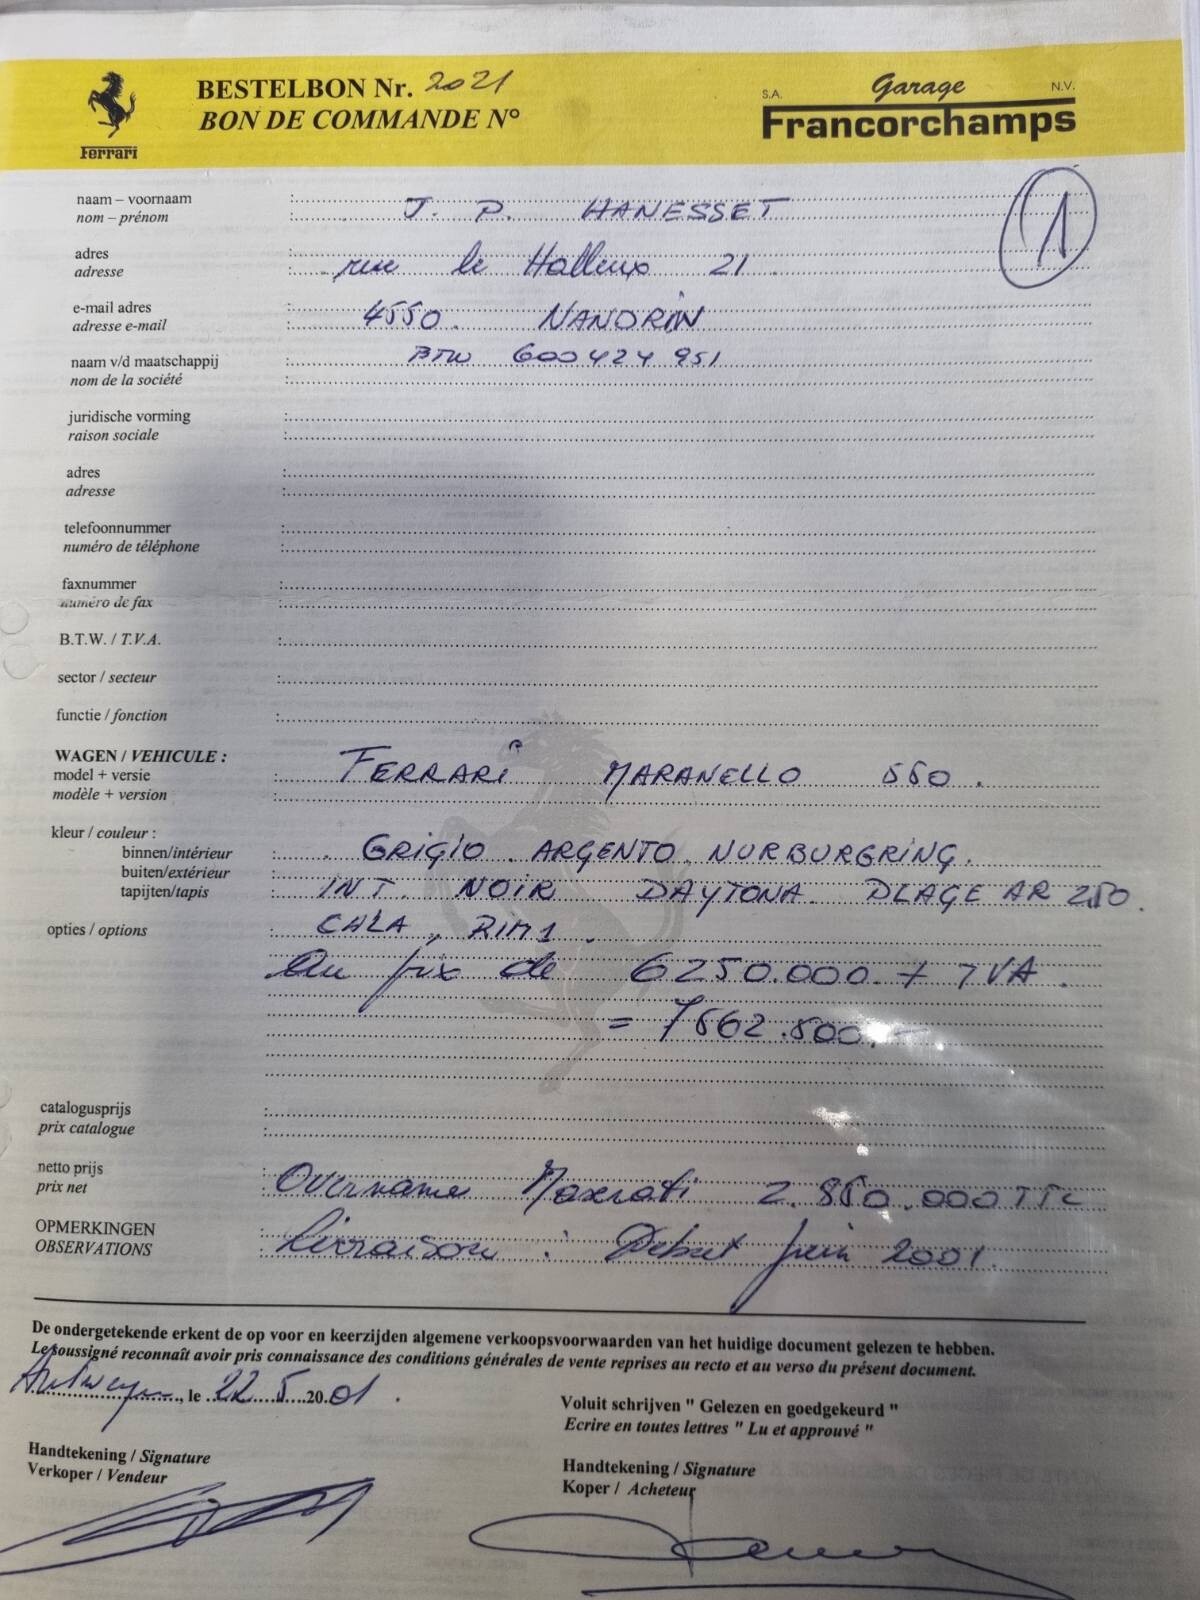 BESTELBON Nr. 2021
BON DE COMMANDE N°
Ferrari
S.A. Garage N.V.
Francorchamps
naam – voornaam
nom – prénom
J. P. HANESSET
1
adres
adresse
rue le Halleux 21
e-mail adres
adresse e-mail
4550. NANDRIN
naam v/d maatschappij
nom de la société
BTW 600 424 951
juridische vorming
raison sociale
adres
adresse
telefoonnummer
numéro de téléphone
faxnummer
numéro de fax
B.T.W. / T.V.A.
sector / secteur
functie / fonction
WAGEN / VEHICULE :
model + versie
modèle + version
FERRARI MARANELLO 550.
kleur / couleur :
binnen/intérieur
GRIGIO ARGENTO NURBURGRING.
buiten/extérieur
tapijten/tapis
INT. NOIR DAYTONA. PLAGE AR 250.
opties / options
CALA, RIMS.
Au prix de 6250.000 + TVA.
= 7562.500,-
catalogusprijs
prix catalogue
netto prijs
prix net
Overname Maserati 2.850.000 TTC
OPMERKINGEN
OBSERVATIONS
Livraison : Début juin 2001.
De ondergetekende erkent de op voor en keerzijden algemene verkoopsvoorwaarden van het huidige document gelezen te hebben.
Le soussigné reconnaît avoir pris connaissance des conditions générales de vente reprises au recto et au verso du présent document.
Antwerpen, le 22.5.2001.
Voluit schrijven " Gelezen en goedgekeurd "
Ecrire en toutes lettres " Lu et approuvé "
Handtekening / Signature
Verkoper / Vendeur
Handtekening / Signature
Koper / Acheteur